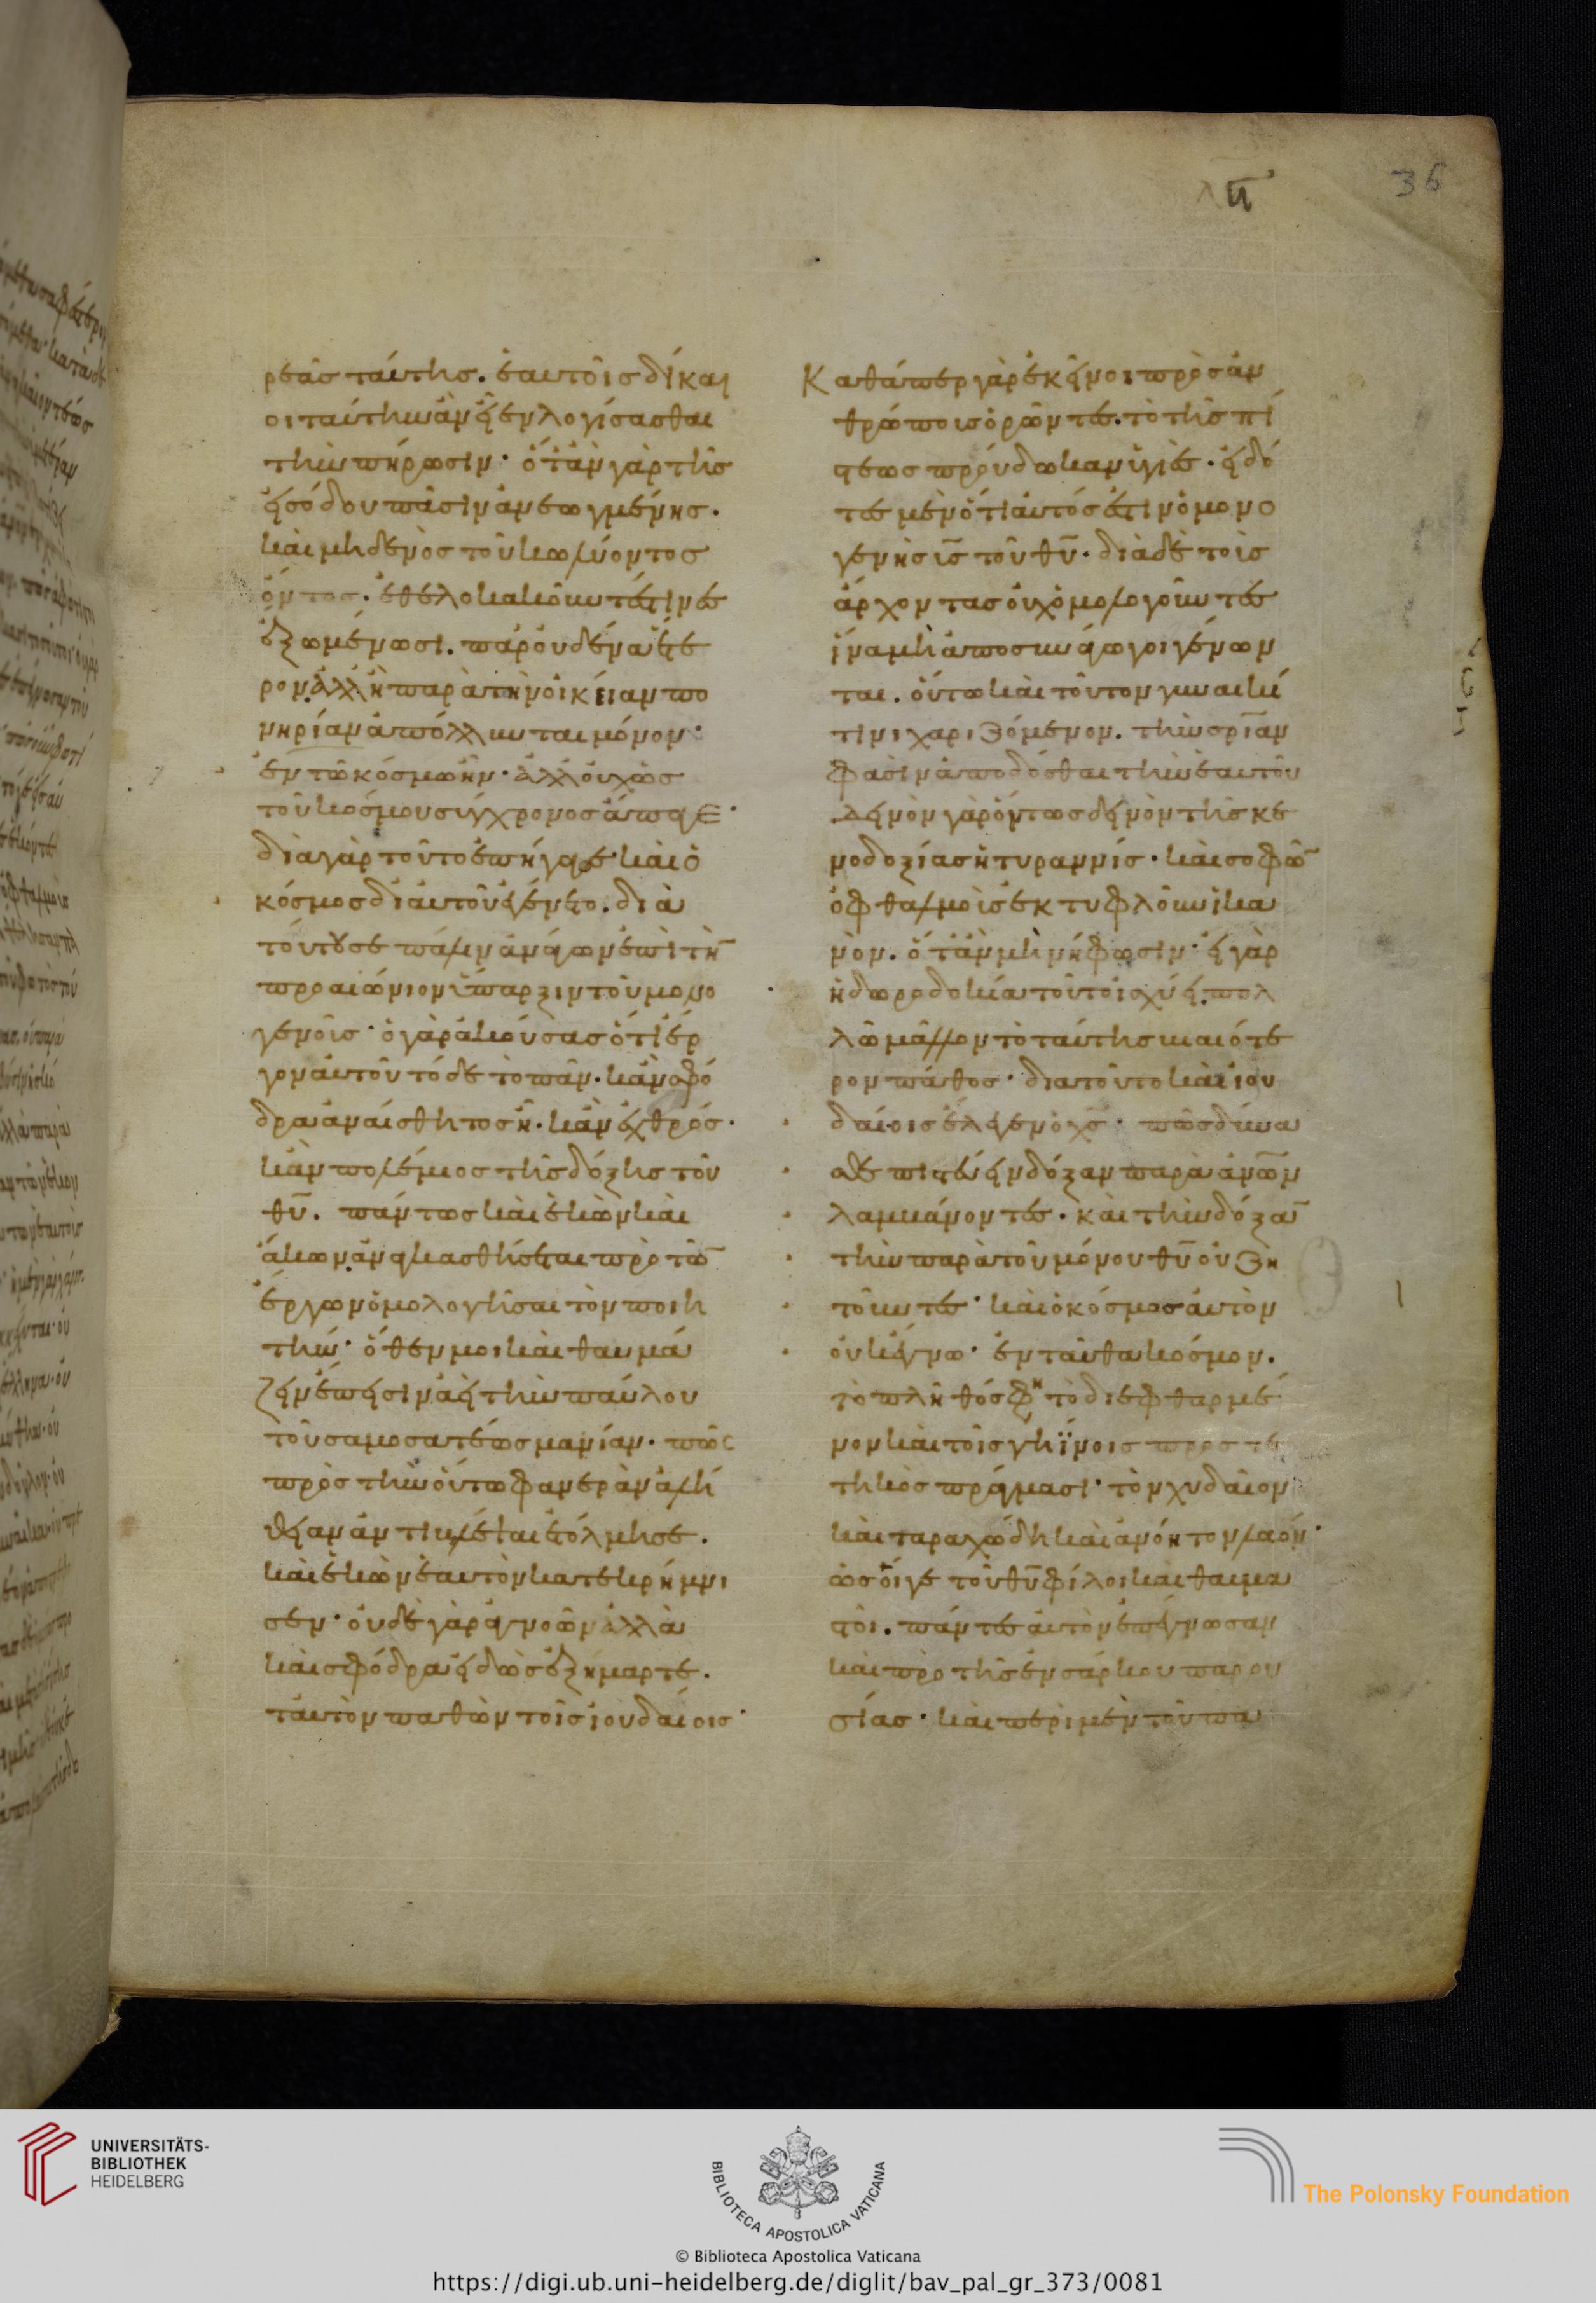 λη
36
ρεᾶς ταύτης. ἑαυτοῖς δίκαι
οι ταύτην ἂν εἶεν λογίσασθαι
τὴν πήρωσιν· ὅτ' ἂν γὰρ τῆς
εἰσόδου πᾶσιν ἀνεωγμένης.
καὶ μηδενὸς τοῦ κωλύοντος
ὄντος. ἐθελοκακοῦντές τινες
ἔξω μένωσι. παρ' οὐδένα ἕτε
ρον. ἀλλ' ἢ παρὰ τὴν οἰκείαν πο
νηρίαν ἀπόλλυνται μόνον·
ἐν τῶ κόσμω ἦν· ἀλλ' οὐχ ὡς
τοῦ κόσμου σύγχρονος ἄπαγε·
διὰ γὰρ τοῦτο ἐπήγαγε· καὶ ὁ
κόσμος δι' αὐτοῦ ἐγένετο. διὰ
τούτου σε πάλιν ἀνάγων ἐπὶ τὴν
προαιώνιον ὕπαρξιν τοῦ μονο
γενοῦς· ὁ γὰρ ἀκούσας ὅτι ἔρ
γον αὐτοῦ τόδε τὸ πᾶν. κἂν σφό
δρα ἀναίσθητος ἦ. κἂν ἐχθρός.
κἂν πολέμιος τῆς δόξης τοῦ
θῡ. πάντως καὶ ἑκὼν καὶ
ἄκων ἀναγκασθήσεται πρὸ τῶν
ἔργων ὁμολογῆσαι τὸν ποιη
τήν· ὅθεν μοι καὶ θαυμά
ζειν ἔπεισιν ἀεὶ τὴν παύλου
τοῦ σαμοσατέως μανίαν· πῶς
πρὸς τὴν οὕτω φανερὰν ἀλή
θειαν ἀντιβλέψαι ἐτόλμησε.
καὶ ἑκὼν ἑαυτὸν κατεκρήμνι
σεν· οὐδὲ γὰρ ἀγνοῶν ἀλλὰ
καὶ σφόδρα εἰδὼς ἐξήμαρτε.
ταυτὸν παθὼν τοῖς ἰουδαίοις·
Καθάπερ γὰρ ἐκεῖνοι πρὸς ἀν
θρώποις ὁρῶντες. τὸ τῆς πί
στεως προὔδωκαν ὑγιές. εἰδό
τες μὲν ὅτι αὐτός ἐστιν ὁ μονο
γενὴς ῡς τοῦ θῡ. διὰ δὲ τοὺς
ἄρχοντας οὐχ ὁμολογοῦντες
ἵνα μὴ ἀποσυνάγωγοι γένων
ται. οὕτω καὶ τοῦτον γυναικί
τινι χαριζόμενον. τὴν σρίαν
φασὶν ἀποδόσθαι τὴν ἑαυτοῦ
δεινὸν γὰρ ὄντως δεινὸν τῆς κε
νοδοξίας ἡ τυραννίς. καὶ σοφῶν
ὀφθαλμοὺς ἐκτυφλοῦν ἱκα
νόν. ὅτ' ἂν μὴ νήφωσιν· εἰ γὰρ
ἡ δωροδοκία τοῦτο ἰσχύει. πολ
λῶ μᾶλλον τὸ ταύτης βιαιότε
ρον πάθος· διατοῦτο καὶ ἰου
δαίοις ἔλεγεν ὁ χς· πῶς δύνα
σθε πιστεύειν δόξαν παρὰ ἀνων
λαμβάνοντες. καὶ τὴν δόξαν
τὴν παρὰ τοῦ μόνου θῡ οὐ ζη
τοῦντες· καὶ ὁ κόσμος αὐτὸν
οὐκ ἔγνω· ἐνταῦθα κόσμον.
τὸ πλῆθός φη τὸ διεφθαρμέ
νον καὶ τοῖς γηΐνοις προστε
τηκὸς πράγμασι· τὸν χυδαῖον
καὶ ταραχώδη καὶ ἀνόητον λαόν·
ὡς οἵ γε τοῦ θῡ φίλοι καὶ θαυμα
στοί. πάντες αὐτὸν ἐπέγνωσαν
καὶ πρὸ τῆς ἐνσάρκου παρου
σίας· καὶ περὶ μὲν τοῦ πα
UNIVERSITÄTS-
BIBLIOTHEK
HEIDELBERG
BIBLIOTECA APOSTOLICA VATICANA
The Polonsky Foundation
© Biblioteca Apostolica Vaticana
https://digi.ub.uni-heidelberg.de/diglit/bav_pal_gr_373/0081